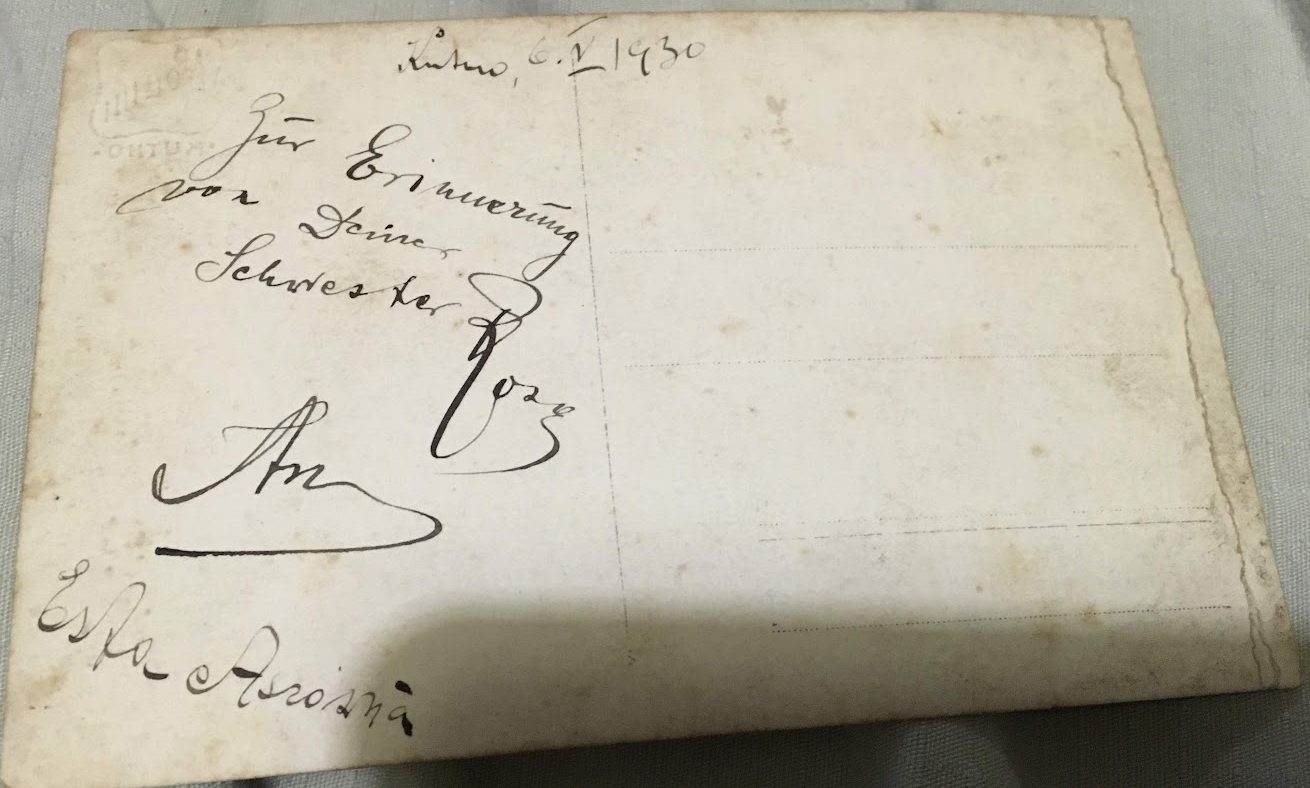 Kutno, 6. V 1930
Zur Erinnerung
von Deiner
Schwester
Roza
Esta
KUTNO